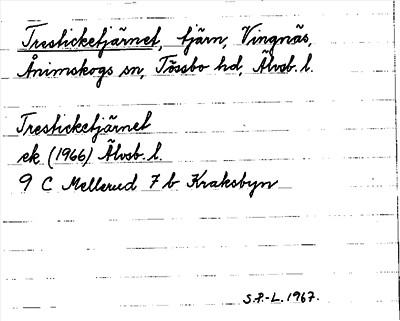 Tresticketjärnet, tjärn, Vingnäs,
Ånimskogs sn, Tössbo hd, Älvsb. l.
Tresticketjärnet
ek. (1966) Älvsb. l.
9 C Mellerud 7 b Kraksbyn
S.P.-L. 1967.